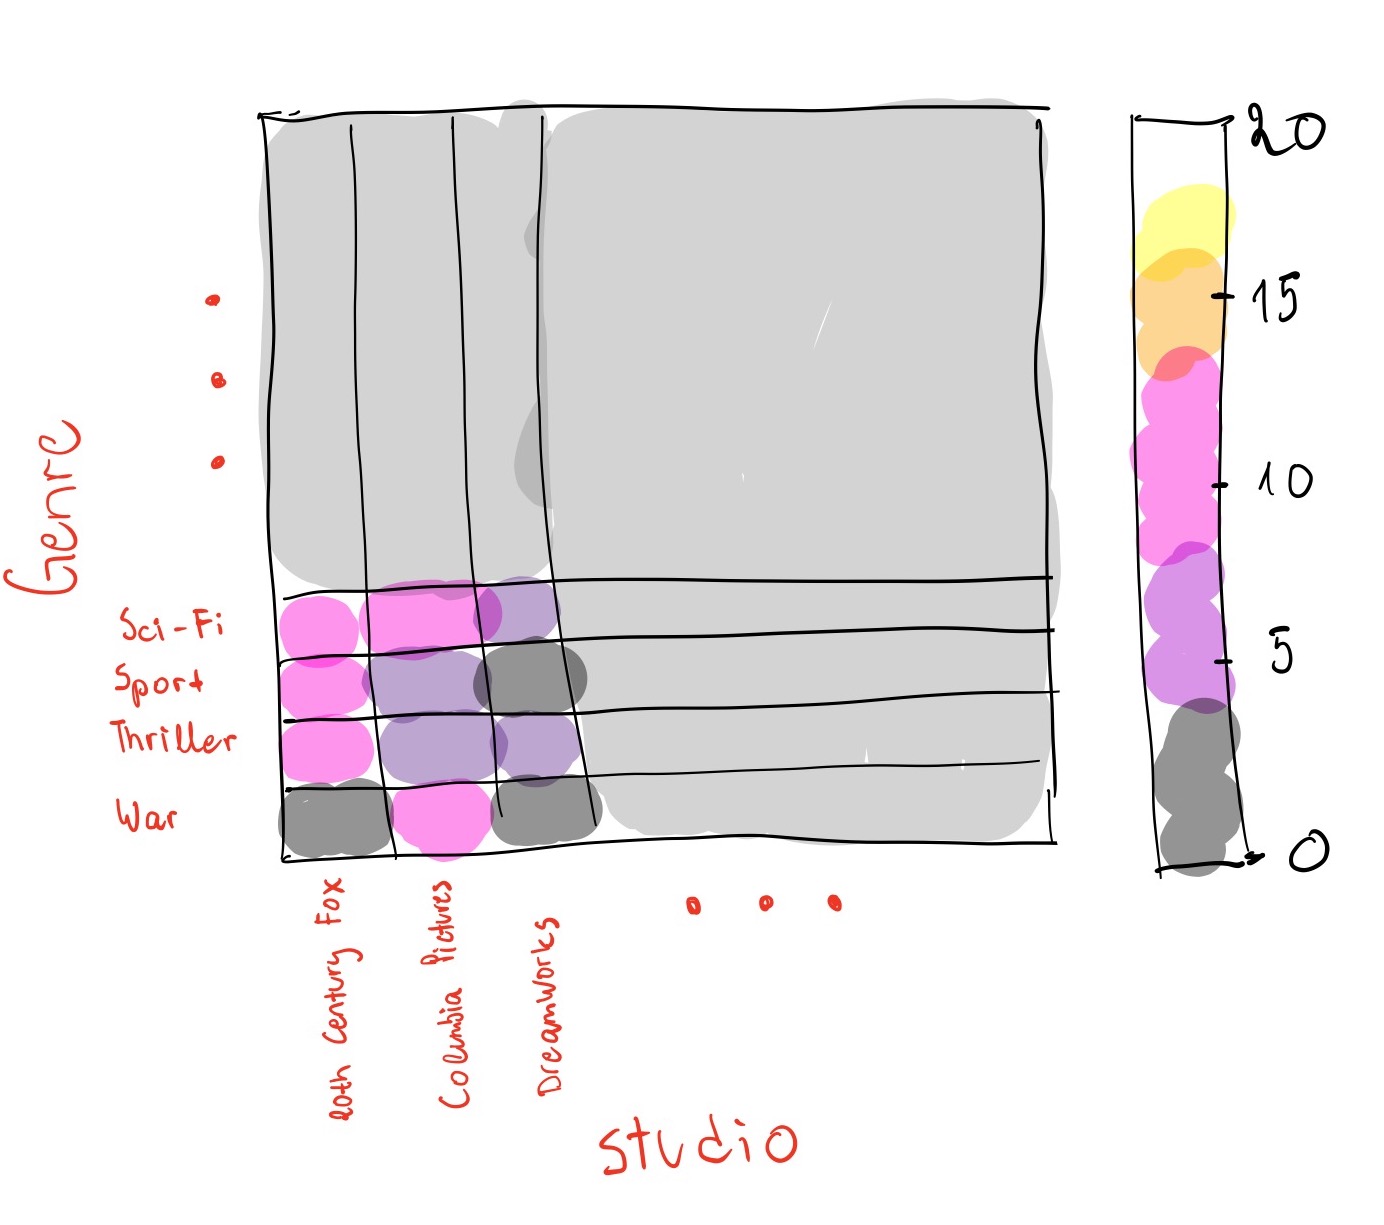 20
15
10
5
0
Genre
Sci-Fi
Sport
Thriller
War
20th Century Fox
Columbia Pictures
DreamWorks
Studio